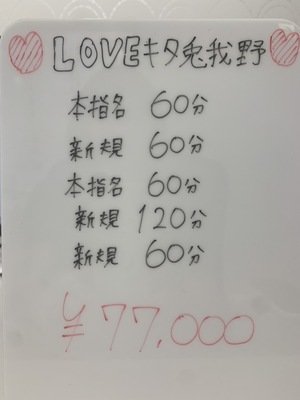 LOVEキタ兎我野
本指名 60分
新規 60分
本指名 60分
新規 120分
新規 60分
¥77.000